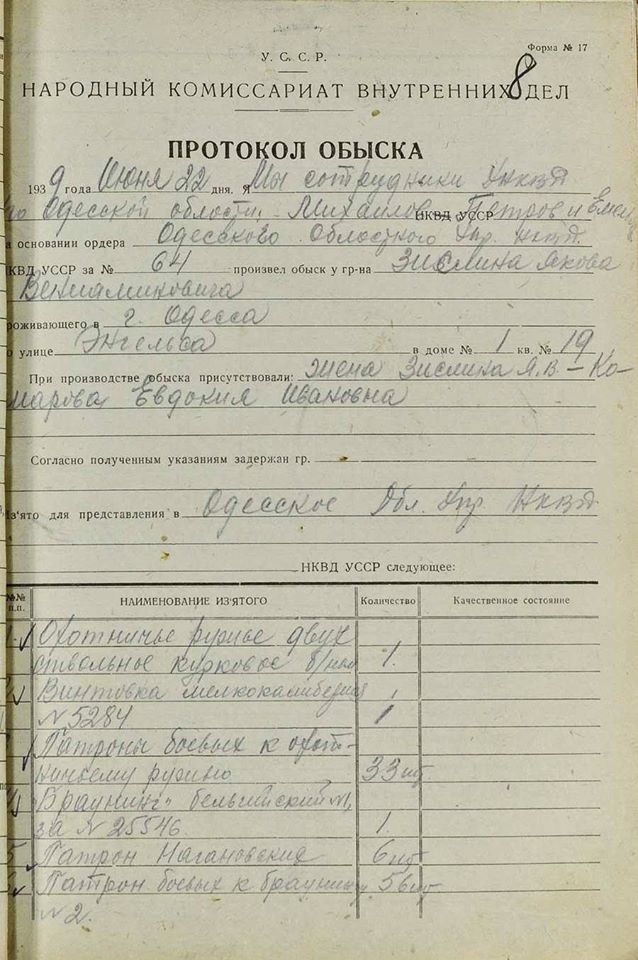 Форма № 17
У. С. С. Р.
8
НАРОДНЫЙ КОМИССАРИАТ ВНУТРЕННИХ ДЕЛ
ПРОТОКОЛ ОБЫСКА
1939 года Июня 22 дня. Я Мы сотрудники УНКВД
по Одесской области: Михайлов НКВД УССР Петров и
а основании ордера Одесского Областного Упр. НКВД
КВД УССР за № 64 произвел обыск у гр-на Зислина Якова
Вениаминовича
роживающего в г. Одесса
о улице Энгельса в доме № 1 кв. № 19
При производстве обыска присутствовали: жена Зислина Я.В – Ко-
марова Евдокия Ивановна
Согласно полученным указаниям задержан гр.
Из'ято для представления в Одесское Обл. Упр НКВД
НКВД УССР следующее:
№№ п.п. НАИМЕНОВАНИЕ ИЗ'ЯТОГО Количество Качественное состояние
1. Охотничье ружье двух
ствольное курковое 1.
Винтовка мелкокалиберная
№ 5284 1
Патроны боевых к охот-
ничьему ружью 33 шт
Браунинг бельгийский №1,
за № 25546. 1.
5 Патрон Нагановские 6 шт
Патрон боевых к браунингу 56 шт
№ 2.